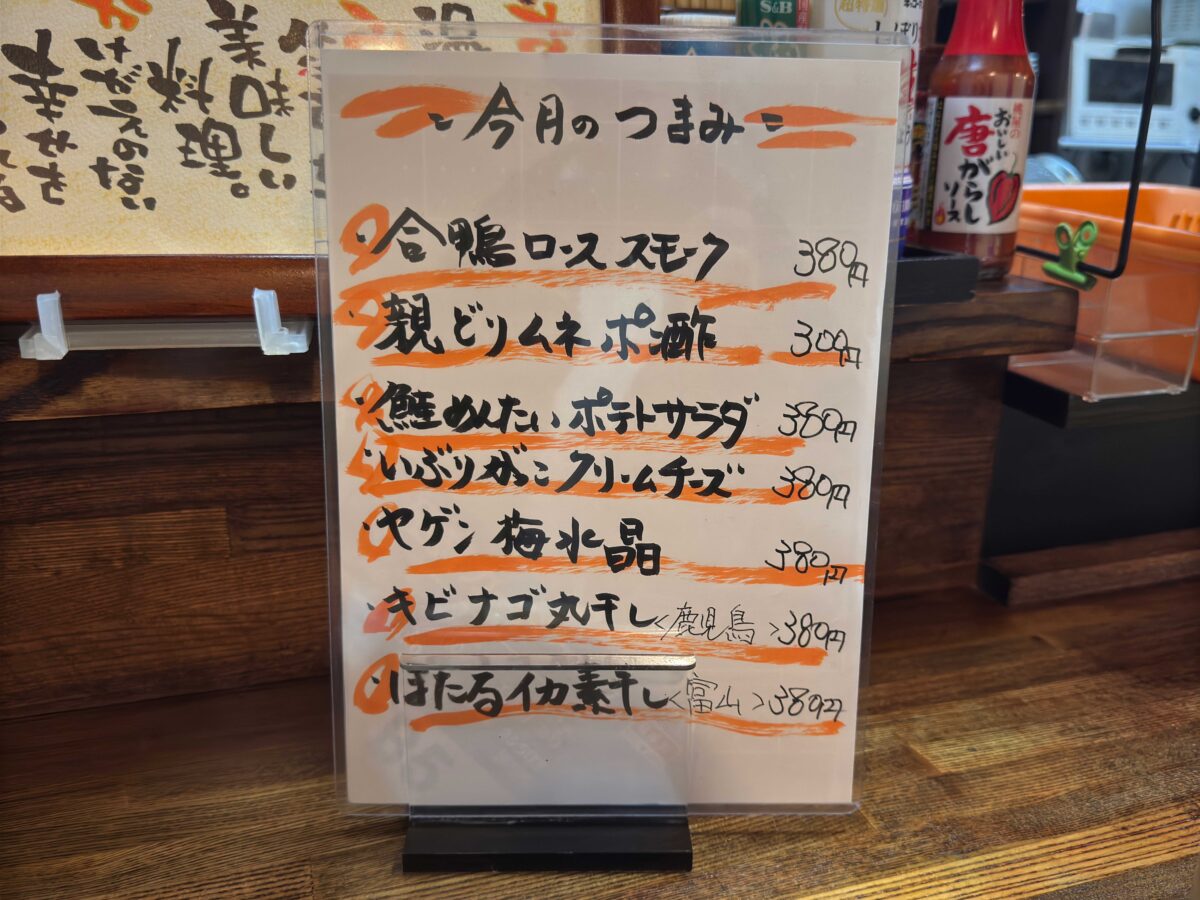 今月のつまみ
合鴨ローススモーク 380円
親どりムネポン酢 300円
鮭めんたいポテトサラダ 380円
いぶりがっこクリームチーズ 380円
ヤゲン梅水晶 380円
キビナゴ丸干し<鹿児島>380円
ほたるイカ素干し<富山>380円
S&B
桃屋の
おいしい
唐がらし
ソース